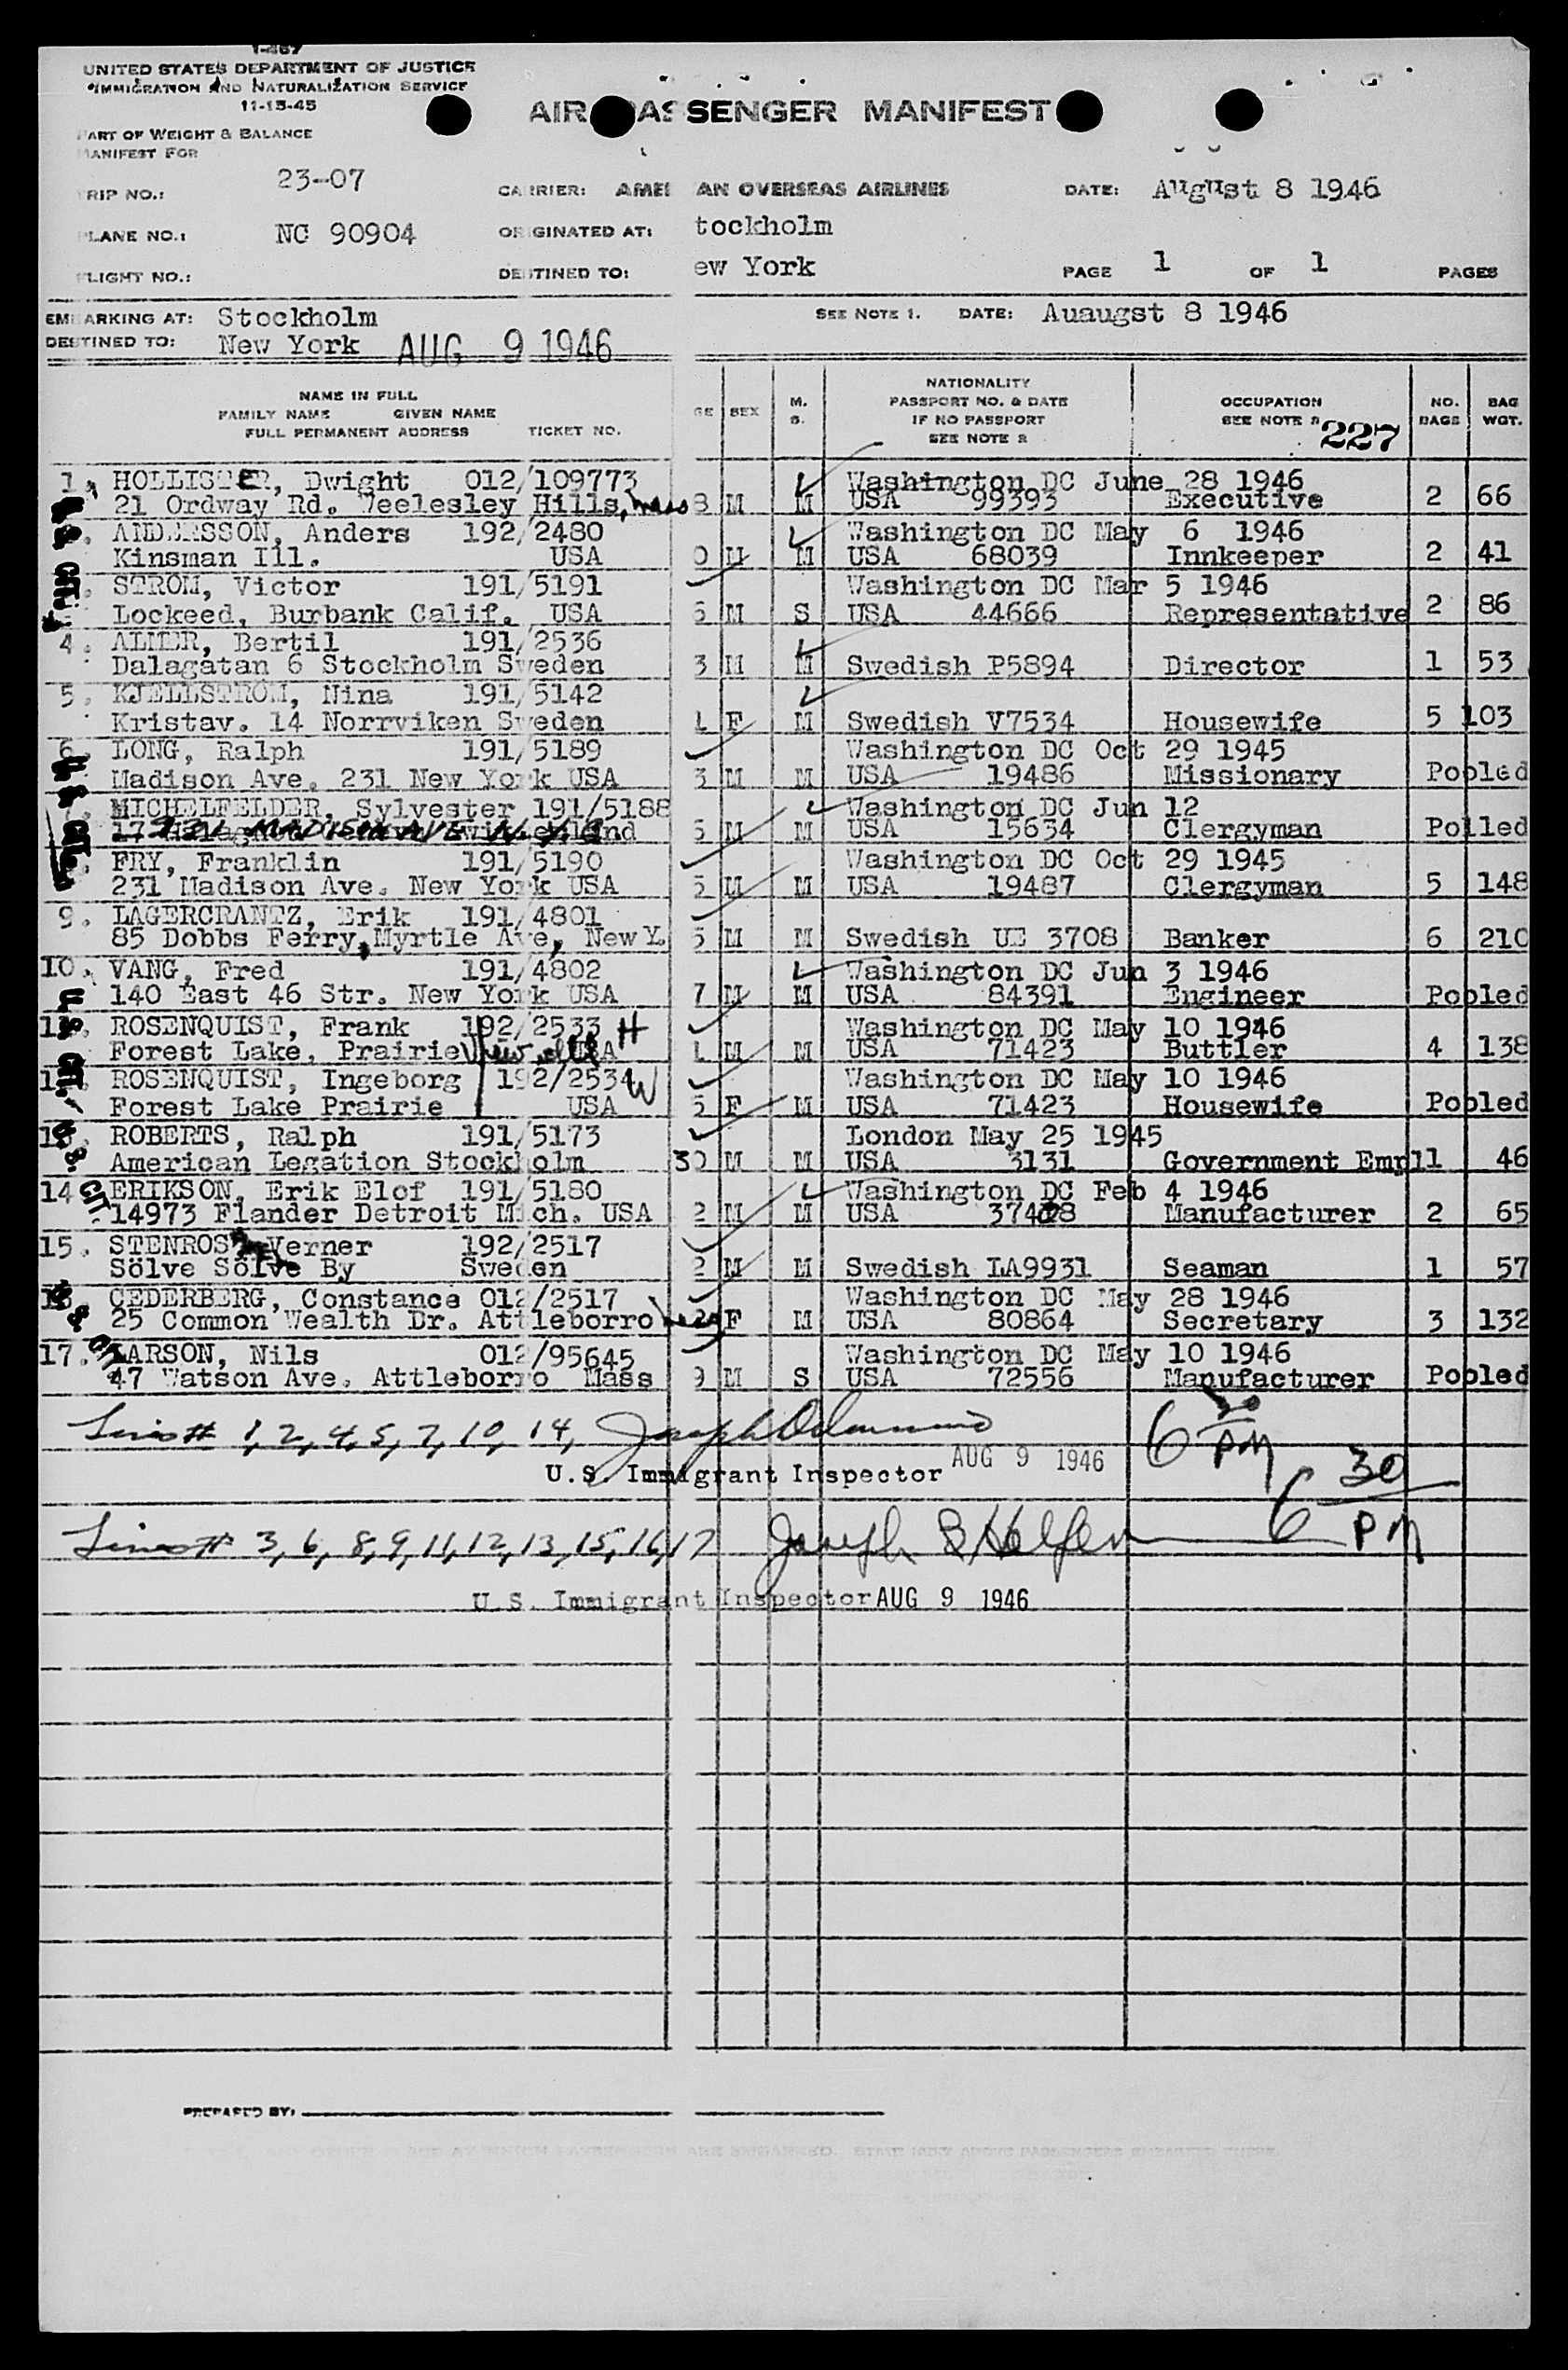 1-467
UNITED STATES DEPARTMENT OF JUSTICE
IMMIGRATION AND NATURALIZATION SERVICE
11-15-45
AIR PASSENGER MANIFEST
ART OF WEIGHT & BALANCE
ANIFEST FOR
RIP NO.: 23-07 CARRIER: AMERI AN OVERSEAS AIRLINES DATE: August 8 1946
LANE NO.: NC 90904 ORIGINATED AT: tockholm
LIGHT NO.: DESTINED TO: ew York PAGE 1 OF 1 PAGES
EMBARKING AT: Stockholm SEE NOTE 1. DATE: Auaugst 8 1946
DESTINED TO: New York AUG 9 1946
NAME IN FULL
FAMILY NAME GIVEN NAME
FULL PERMANENT ADDRESS TICKET NO. GE SEX M. S. NATIONALITY PASSPORT NO. & DATE IF NO PASSPORT SEE NOTE 2 OCCUPATION SEE NOTE 2 227 NO. BAGS BAG WGT.
1. HOLLISTER, Dwight 012/109773 Washington DC June 28 1946
21 Ordway Rd. Weelesley Hills, Mass 8 M M USA 99393 Executive 2 66
ANDERSSON, Anders 192/2480 Washington DC May 6 1946
Kinsman Ill. USA 0 M M USA 68039 Innkeeper 2 41
STROM, Victor 191/5191 Washington DC Mar 5 1946
Lockeed, Burbank Calif. USA 6 M S USA 44666 Representative 2 86
4. ALMER, Bertil 191/2536
Dalagatan 6 Stockholm Sweden 3 M M Swedish P5894 Director 1 53
5. KJELLSTROM, Nina 191/5142
Kristav. 14 Norrviken Sweden 1 F M Swedish V7534 Housewife 5 103
6. LONG, Ralph 191/5189 Washington DC Oct 29 1945
Madison Ave. 231 New York USA 3 M M USA 19486 Missionary Pooled
MICHELFELDER, Sylvester 191/5188 Washington DC Jun 12
231 MADISON AVE N.Y.C. 6 M M USA 15634 Clergyman Polled
FRY, Franklin 191/5190 Washington DC Oct 29 1945
231 Madison Ave. New York USA 5 M M USA 19487 Clergyman 5 148
9. LAGERCRANTZ, Erik 191/4801
85 Dobbs Ferry, Myrtle Ave, New Y. 5 M M Swedish UE 3708 Banker 6 210
10. VANG, Fred 191/4802 Washington DC Jun 3 1946
140 East 46 Str. New York USA 7 M M USA 84391 Engineer Pooled
11. ROSENQUIST, Frank 192/2533 H Washington DC May 10 1946
Forest Lake, Prairie View, Ill USA 1 M M USA 71423 Buttler 4 138
12. ROSENQUIST, Ingeborg 192/2534 W Washington DC May 10 1946
Forest Lake Prairie USA 5 F M USA 71423 Housewife Pooled
13. ROBERTS, Ralph 191/5173 London May 25 1945
American Legation Stockholm 30 M M USA 3131 Government Empl 1 46
14 ERIKSON, Erik Elof 191/5180 Washington DC Feb 4 1946
14973 Flander Detroit Mich. USA 2 M M USA 37408 Manufacturer 2 65
15. STENROS Verner 192/2517
Sölve Sölve By Sweden 2 M M Swedish LA9931 Seaman 1 57
16. CEDERBERG, Constance 012/2517 Washington DC May 28 1946
25 Common Wealth Dr. Attleborro 2 F M USA 80864 Secretary 3 132
17. LARSON, Nils 012/95645 Washington DC May 10 1946
47 Watson Ave. Attleborro Mass 9 M S USA 72556 Manufacturer Pooled
Lines # 1, 2, 4, 5, 7, 10, 14, Joseph 6 30 PM
U.S. Immigrant Inspector AUG 9 1946
Lines # 3, 6, 8, 9, 11, 12, 13, 15, 16, 17 Joseph B Helfen 6 30 PM
U.S. Immigrant Inspector AUG 9 1946
PREPARED BY: